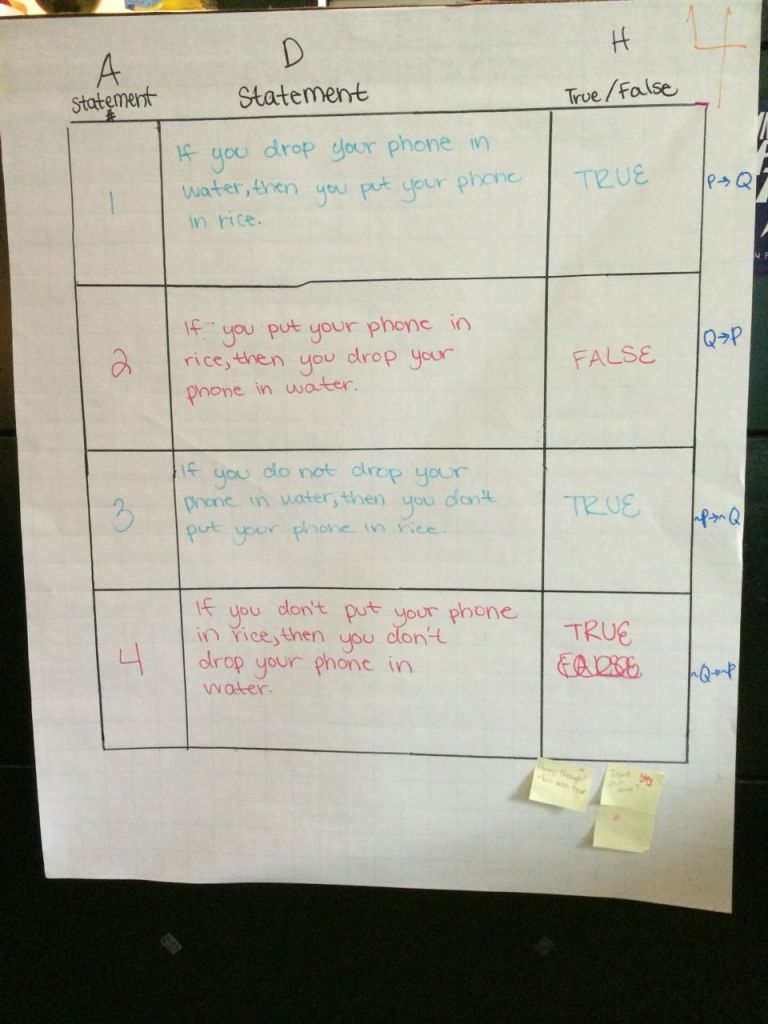 A D H 4
Statement # Statement True/False
1 If you drop your phone in
water, then you put your phone
in rice.
TRUE P→Q
2 If you put your phone in
rice, then you drop your
phone in water.
FALSE Q→P
3 If you do not drop your
phone in water, then you don't
put your phone in rice.
TRUE ~P→~Q
4 If you don't put your phone
in rice, then you don't
drop your phone in
water.
TRUE
FALSE
~Q→~P
yes